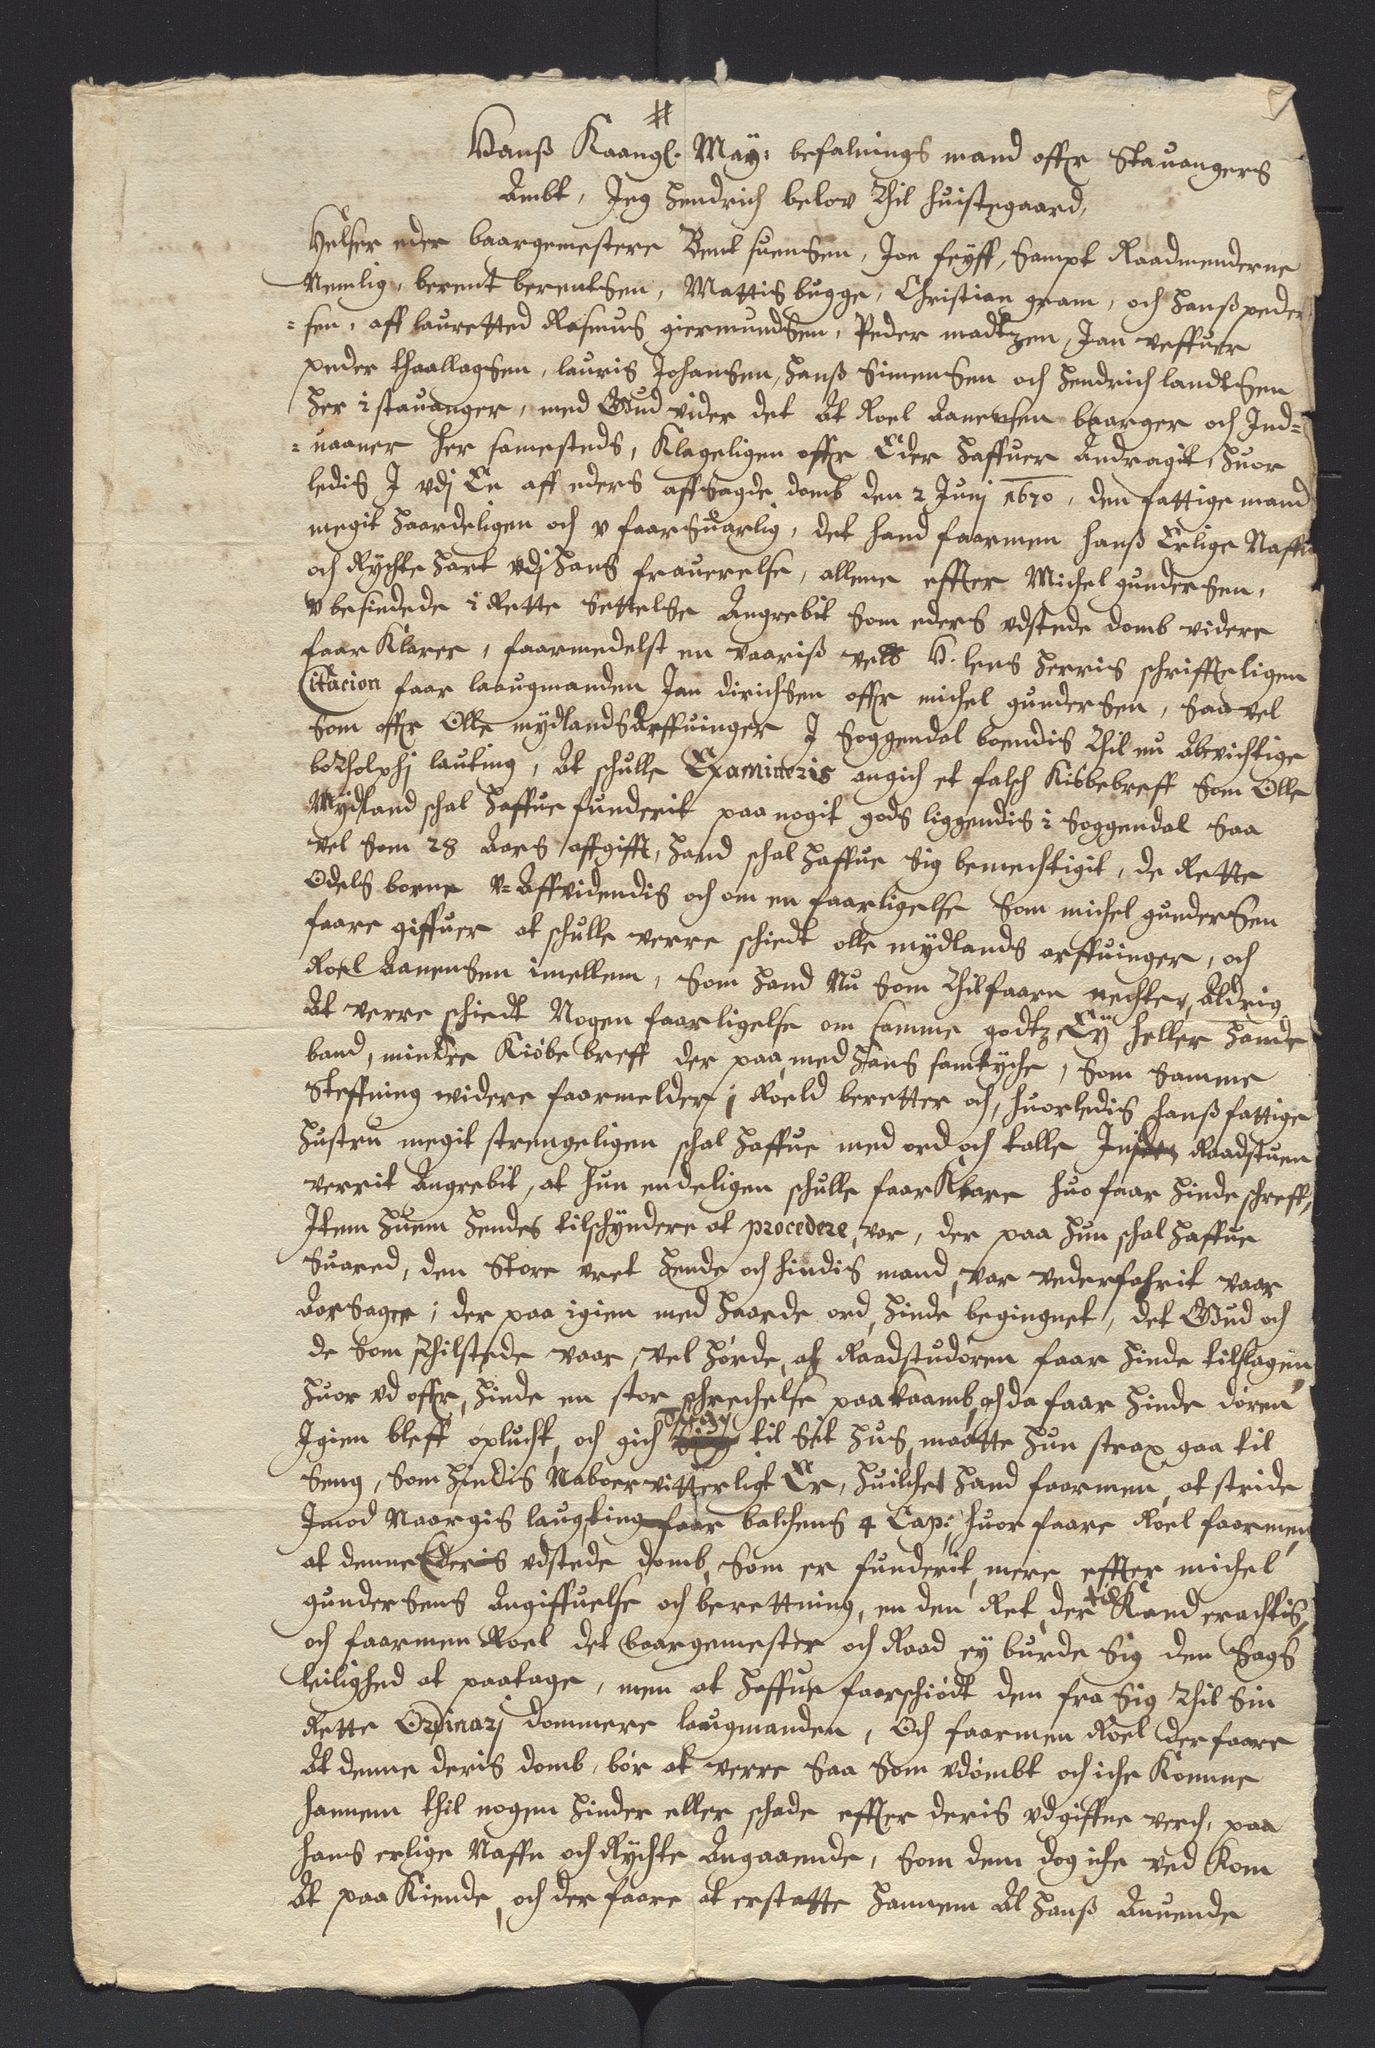 #
Hanß Kaangl. May: befalnings mand offr Stauangers
Ambt, Jeg Hendrich belov Thil huistegaard,
Helser eder baargemestere Bent suensen, Jon feyff, sampt Raadmenderne
Nemlig, berent berentsen, Mattis bugge, Christian gram, och Hanß peder
=sen, aff lauretted Rasmus giermundsen, Peder madtzen, Jan veffuer
peder thaallagsen, lauris Johansen, Hanß Simensen och Hendrich landtsen
her i stauanger, med Gud vider det At Roel Aanensen baarger och Ind=
=uaaner her samesteds, Klageligen offr Eder haffuer Andragit, huor
ledis I vdj En aff eders affsagde domb den 2 Junj 1670, den fattige mand
megit haardeligen och v faarsuarlig, det hand faarmen hanß Erlige Naffn
och Rychte hart vdj hans frauerelse, allene effter Michel gundersen,
v befindede i Rette settelse Angrebit som eders vdstede domb videre
faar Klarer, faarmedelst en vaariß velb H. lens herris schrifftligen
Citacion faar laaugmanden Jan dirichsen offr michel gundersen, saa vel
som offr Olle mydlands Arffuinger I Soggendal boendis Thil nu Abrichtige
botholphj lauting, At schulle Examineris angich et falsch Kiøbebreff som Olle
Mydland schal haffue funderit paa nogit gods liggendis i Soggendal saa
vel som 28 Aars affgifft, hand schal haffue sig bemechtigit, de Rette
Odels borne v=Affvidendis och om en faarligelse som michel gundersen
faare giffuer at schulle verre schiedt olle mydlands arffuinger, och
Roel Aanensen imellem, som hand Nu som Thilfaarn nechter, Aldrig
At verre schiedt Nogen faarligelse om samme godtz Ey heller hande
band, mindre Kiøbe breff der paa med hans samtyche, som samme
Steffning widere faarmelder; Roeld beretter och, huorledis hanß fattige
hustru megit strengeligen schal haffue med ord och talle Raadstuen
verrit Angrebit, at hun endeligen schulle faar Klare huo faar hinde schreff,
Item huem hendes tilschyndere at procedere, var, der paa hun schal haffue
Suared, den Store vret hende och hindis mand, var vederfahrit vaar
Aarsager; der paa igien med haarde ord, hinde begingnet, det Gud och
de som thilstede vaar, vel hørde, at Raadstudøren faar hinde tilslagen,
huor vd offr, hinde en stor schrechelse paakaamb, och da faar hinde døren
Igien bleff oplucht, och gich til sit hus, maatte hun strax gaa til
Seng, som hindis Naboer vitterligt Er, huilchet hand faarmen, at stride
Jmod Naargis laugting faar balchens 4 Cap: huor faare Roel faarmen,
at denne Ederis vdstede domb, som er funderit, mere effter michel
gundersens Angiffuelse och berettning, en den Ret, der Kand erachtis,
och faarmen Roel det Baargemester och Raad ey burde sig den Sags
leilighed at paatage, men at haffue faarschiødt den fra sig Thil sin
Rette Ordinarj dommere laugmanden, Och faarmen Roel der faare
At denne deris domb, bør at verre saa som vdømbt och iche Komme
hannem thil nogen hinder eller schade effter deris vdgiffne verch, paa
hans erlige Naffn och Rychte Angaaende, som dem dog iche ved Kom
At paa Kiende, och der faare at erstatte hannem Al hanß Anuende